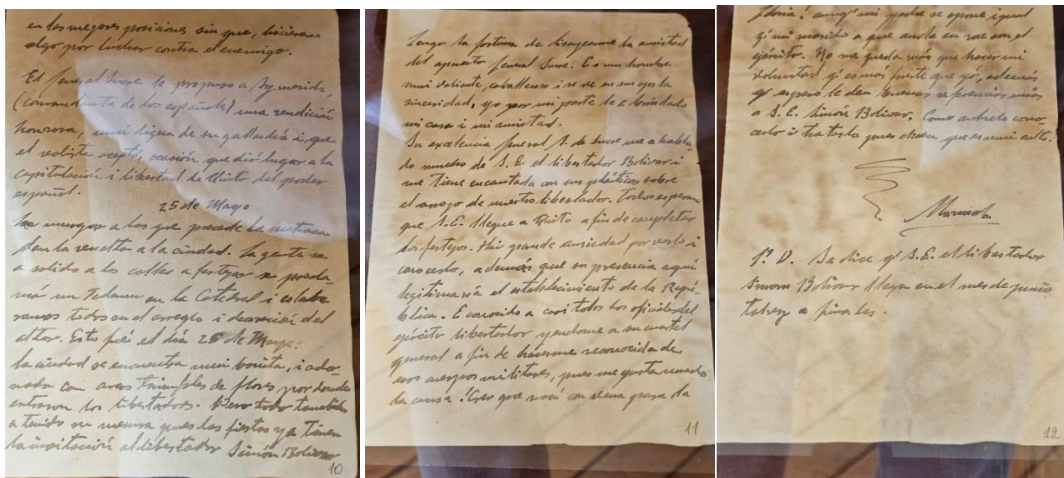 en las mejores posiciones sin que, hicieran
algo por luchar contra el enemigo.
El general luego le propuso a Aymerich,
(comandante de los españoles) una rendición
honrosa, mui digna de su gallardía i que
el realista aceptó, ocasión que dió lugar a la
capitulación i libertad de Quito del poder
español.
25 de Mayo
los a los que precede la
dan la vuelta a la ciudad. La gente se
a salido a las calles a festejar se
un Tedeum en la Catedral i colabo
ramos todos en el arreglo i del
altar. Esto fué el día 25 de Mayo.
La ciudad se encuentra mui bonita, i ador
nada con arcos triunfales de flores por donde
entraron los libertadores. Pero todo también
a tenido su mesura pues las fiestas ya tienen
la invitación al libertador Simón Bolívar
10
Tengo la fortuna de la amistad
del apuesto general Sucre. Es un hombre
mui valiente, caballeroso i se ve en sus ojos la
sinceridad, yo por mi parte le e brindado
mi casa i mi amistad.
Su excelencia general A. de Sucre me a habla
do mucho de S. E. el libertador Bolívar i
me tiene encantada con sus pláticas sobre
el arrojo de nuestro libertador. Todos esperan
que S.E. llegue a Quito a fin de completar
los festejos. Hai grande ansiedad por verlo i
conocerlo, además que su presencia aquí
legitimaría el establecimiento de la Repú
blica. E conocido a casi todos los oficiales del
ejército libertador yendome a su cuartel
general a fin de hacerme reconocida de
esos cuerpos militares, pues me gusta mucho
la causa! Creo que nací con el para la
11
gloria! aunq' mi padre se opone igual
q' mi marido a que ande en roce con el
ejército. No me queda más que hacer mi
voluntad q' es más fuerte que yo, además
yo espero le den buenas referencias mías
a S. E. Simón Bolívar. Como anhelo cono
cerlo i tratarlo pues dicen que es mui culto.
Manuela
P. D. Se dice q' S.E. el libertador
Simon Bolívar llega en el mes de junio
talvez a finales.
12